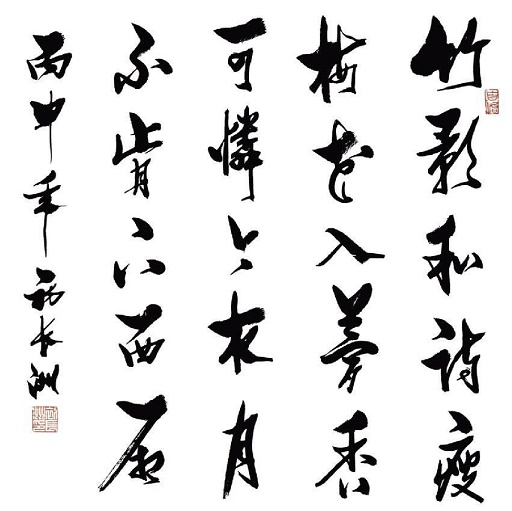 竹影和詩瘦
梅花入夢香
可憐今夜月
不肯下西厢
丙申年長洲